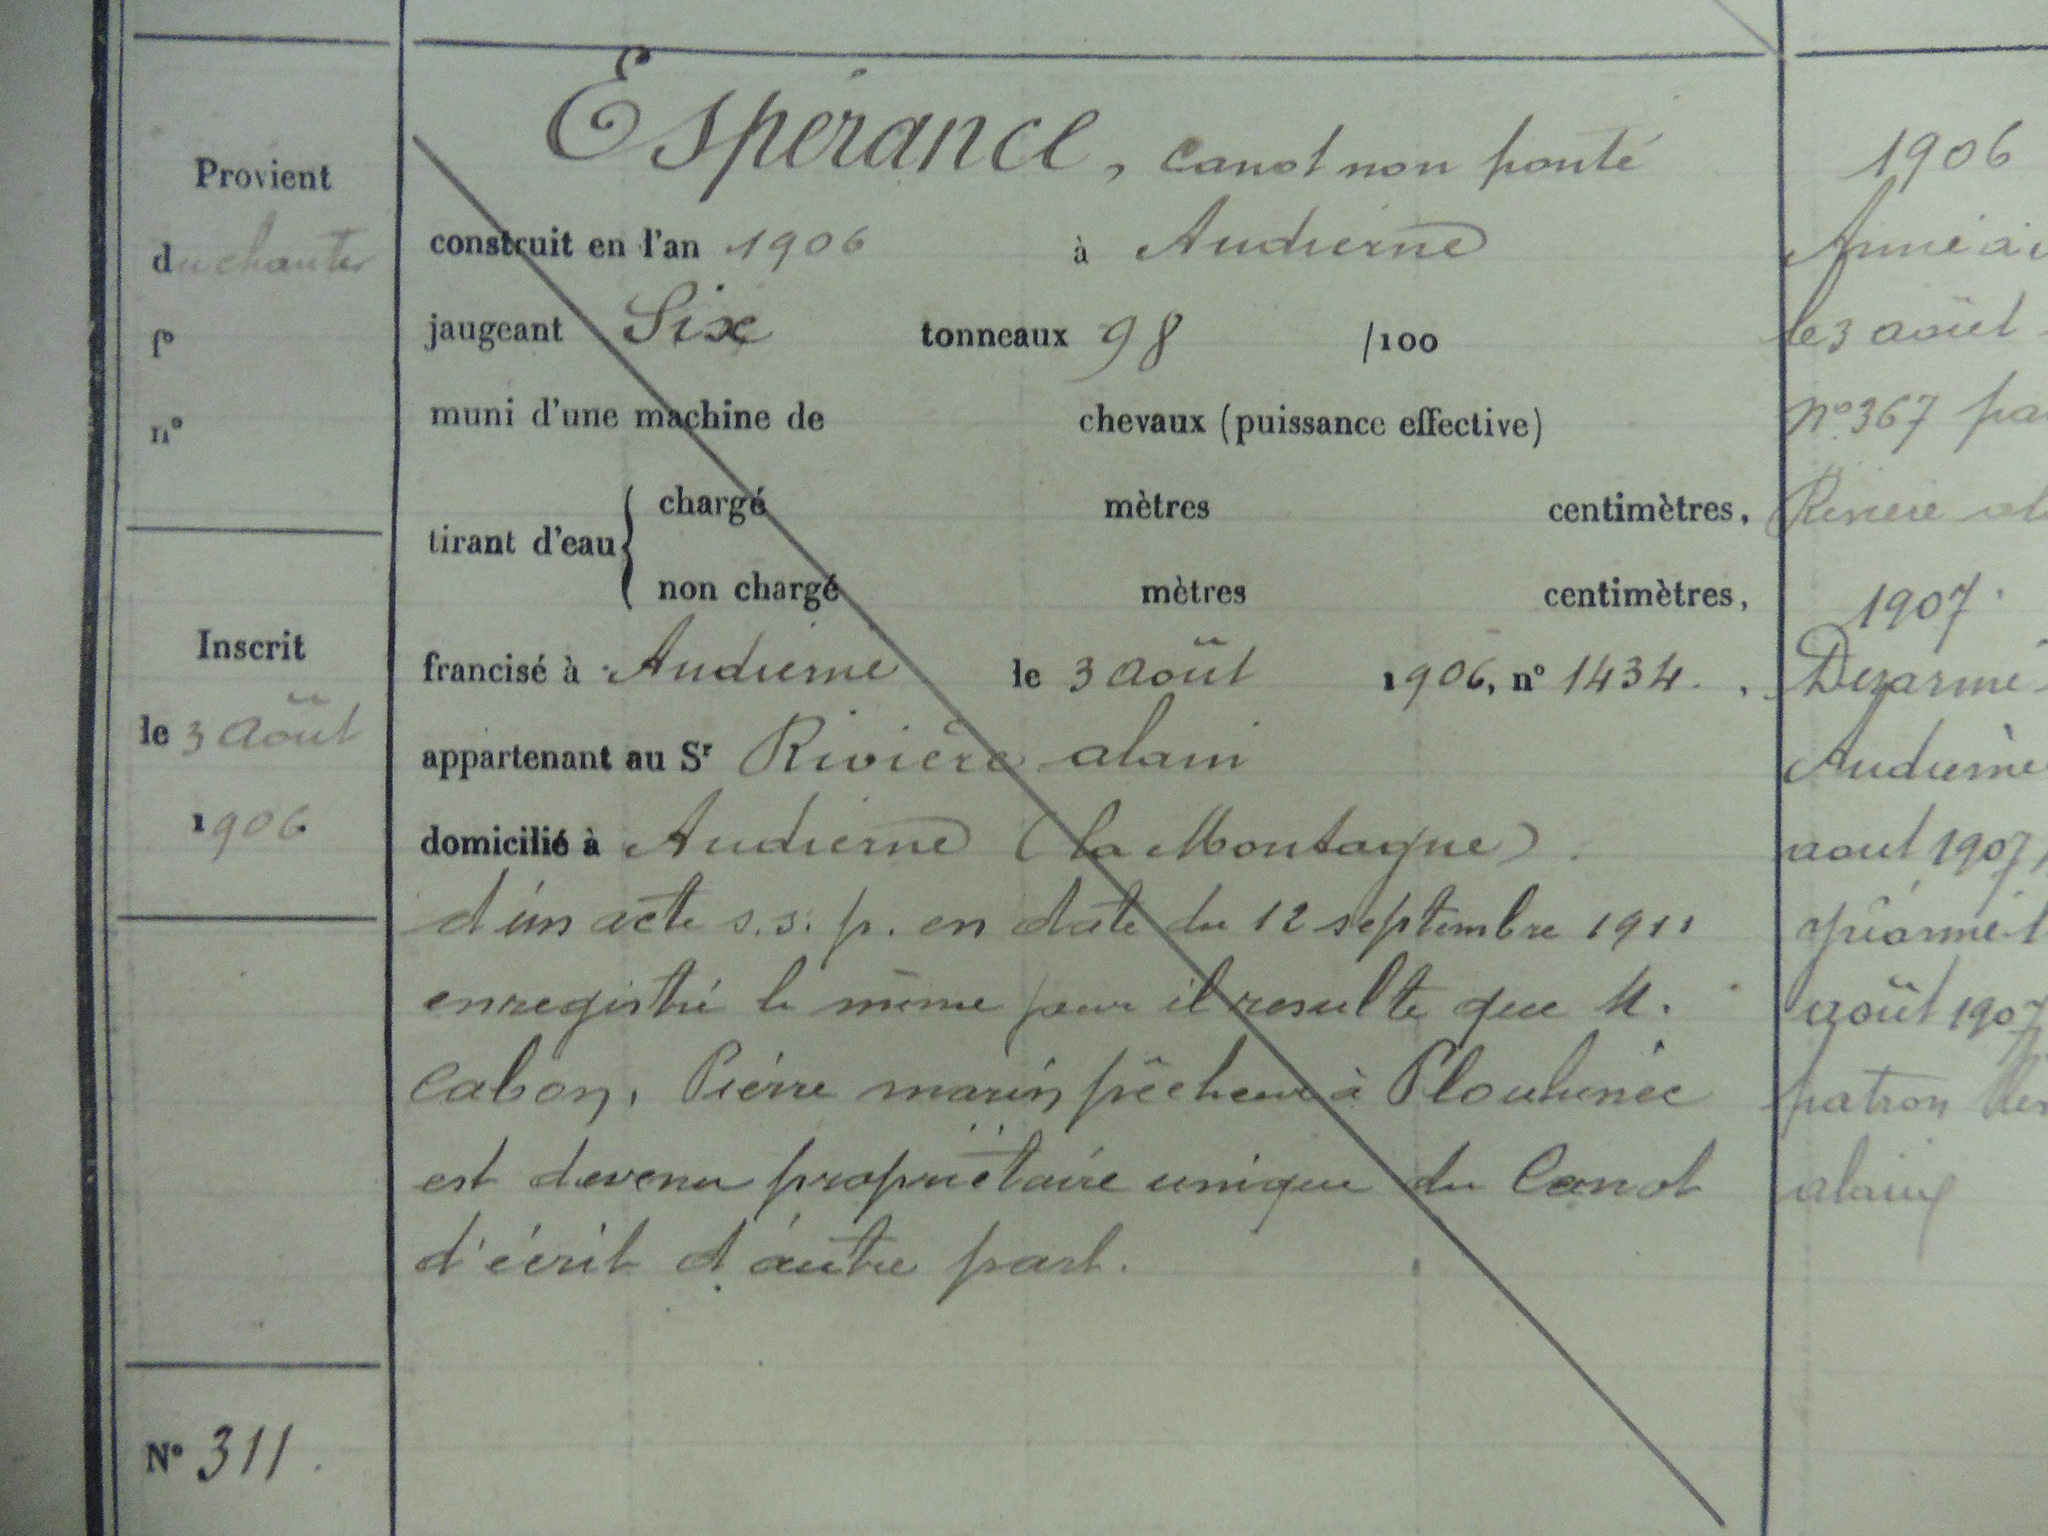 Provient
du chantier
f°
n°
Inscrit
le 3 Août
1906
N° 311.
Espérance, canot non ponté
construit en l'an 1906 à Audierne
jaugeant Six tonneaux 98 /100
muni d'une machine de chevaux (puissance effective)
tirant d'eau { chargé mètres centimètres,
non chargé mètres centimètres,
francisé à Audierne le 3 Août 1906, n° 1434.,
appartenant au Sr Rivière alain
domicilié à Audierne (la Montagne).
d'un acte s.s.p. en date du 12 septembre 1911
enregistré le même jour il resulte que M.
Cabon, Pierre marin pêcheur à Plouhinec
est devenu propriétaire unique du Canot
d'écrit d'autre part.
1906
Armé à
le 3 août
n° 367 pa
Rivière al
1907
Desarmé
Audierne
aout 1907
réarmé
août 1907
patron
alain